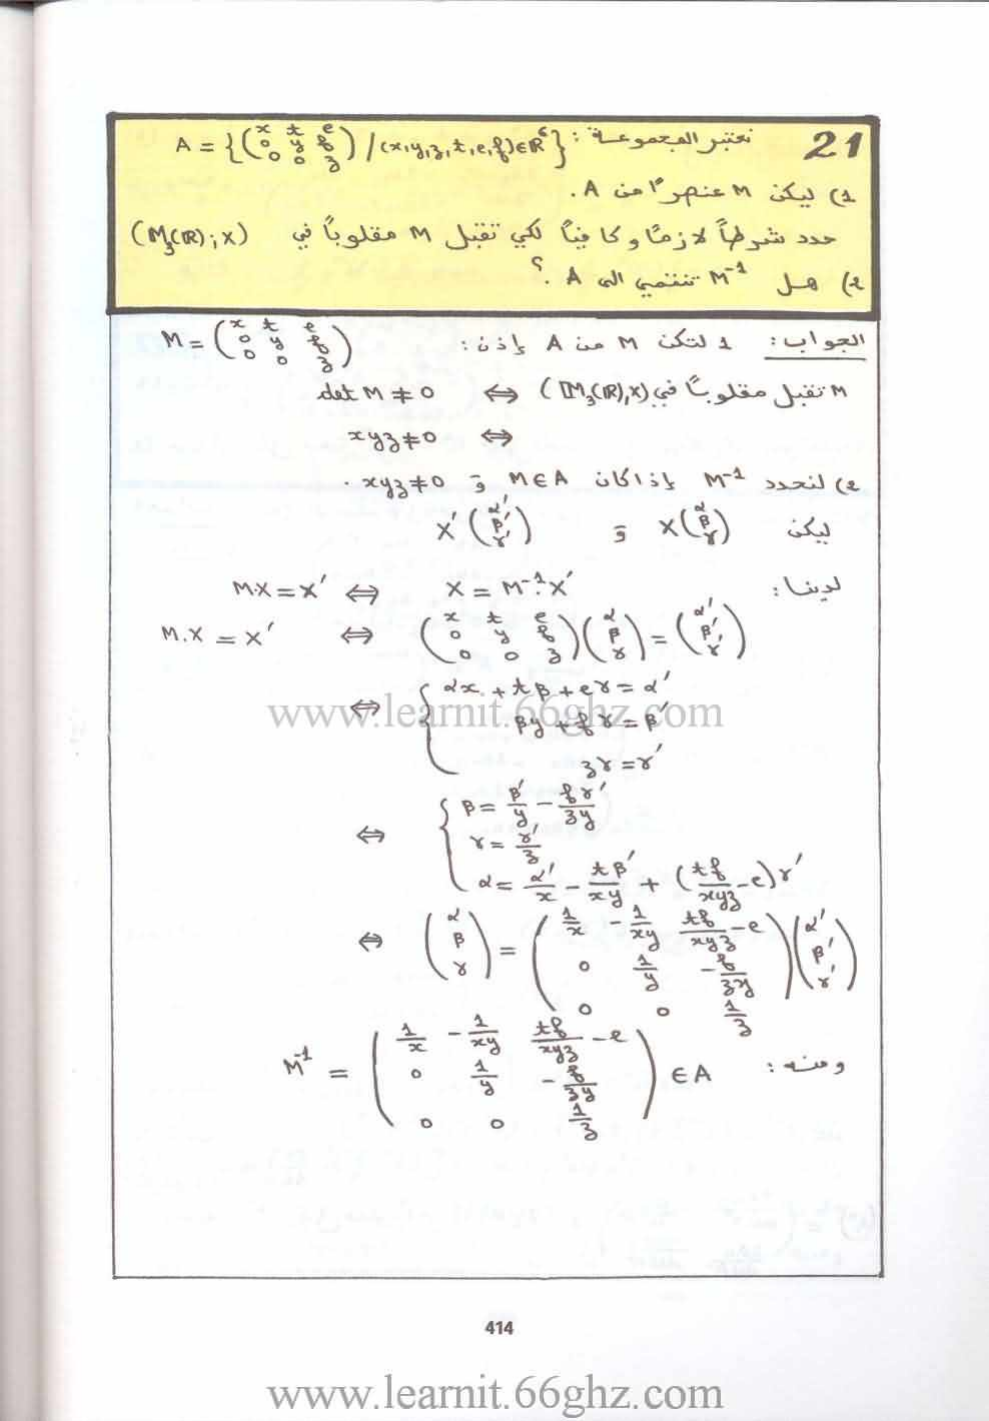 21 نعتبر المجموعة : A = {(x t e ; 0 y f ; 0 0 z) / (x,y,z,t,e,f) ∈ ℝ⁶}
1) ليكن M عنصرًا من A .
حدد شرطاً لازمًا وكافيًا لكي تقبل M مقلوباً في (M₃(ℝ); ×)
2) هل M⁻¹ تنتمي الى A . ؟
الجواب : 1 لتكن M من A إذن : M = (x t e ; 0 y f ; 0 0 z)
M تقبل مقلوباً في (M₃(ℝ), ×) ⇔ det M ≠ 0
⇔ xyz ≠ 0
2) لنحدد M⁻¹ إذا كان M ∈ A و xyz ≠ 0 .
ليكن X(α ; β ; γ) و X'(α' ; β' ; γ')
لدينا : X = M⁻¹.X' ⇔ M.X = X'
M.X = X' ⇔ (x t e ; 0 y f ; 0 0 z)(α ; β ; γ) = (α' ; β' ; γ')
⇔ { αx + tβ + eγ = α'
βy + fγ = β'
zγ = γ'
⇔ { β = β'/y - fγ'/zy
γ = γ'/z
α = α'/x - tβ'/xy + (tf/xyz - e)γ'
⇔ (α ; β ; γ) = (1/x -1/xy tf/xyz - e ; 0 1/y -f/zy ; 0 0 1/z)(α' ; β' ; γ')
ومنه : M⁻¹ = (1/x -1/xy tf/xyz - e ; 0 1/y -f/zy ; 0 0 1/z) ∈ A
www.learnit.66ghz.com
414
www.learnit.66ghz.com